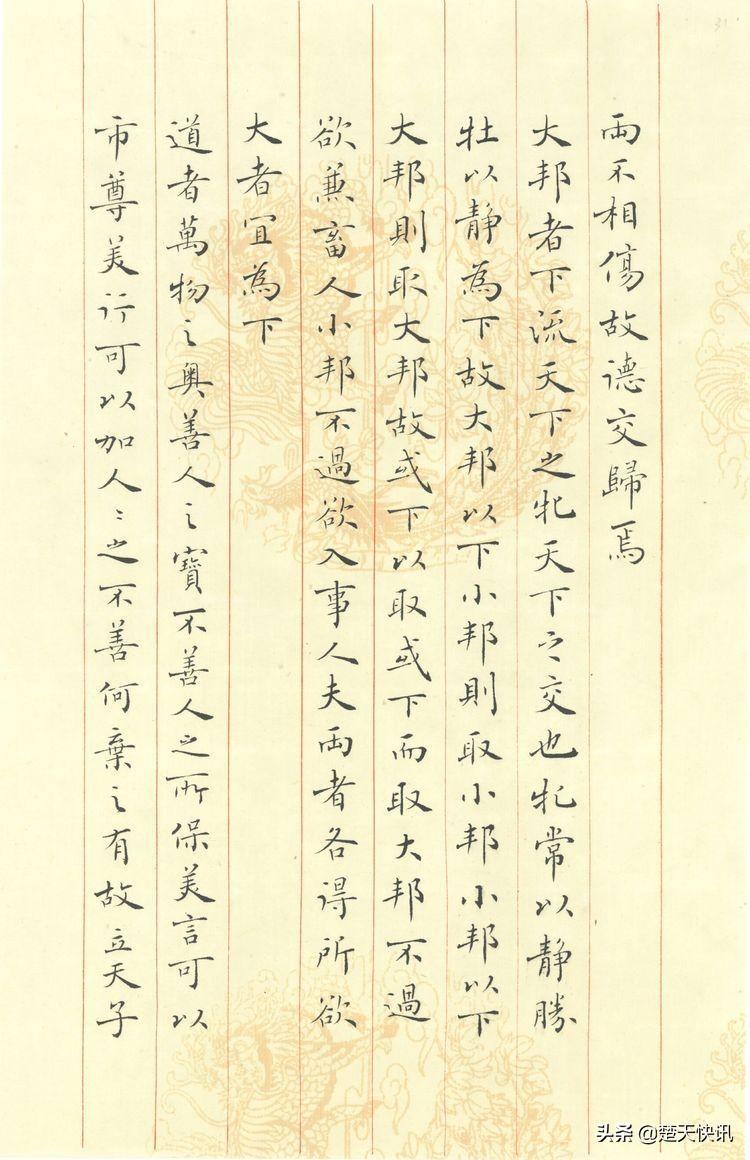 兩不相傷故德交歸焉
大邦者下流天下之牝天下之交也牝常以靜勝
牡以靜為下故大邦以下小邦則取小邦小邦以下
大邦則取大邦故或下以取或下而取大邦不過
欲兼畜人小邦不過欲入事人夫兩者各得所欲
大者宜為下
道者萬物之奧善人之寶不善人之所保美言可以
市尊美行可以加人〻之不善何棄之有故立天子
31
头条 @楚天快讯